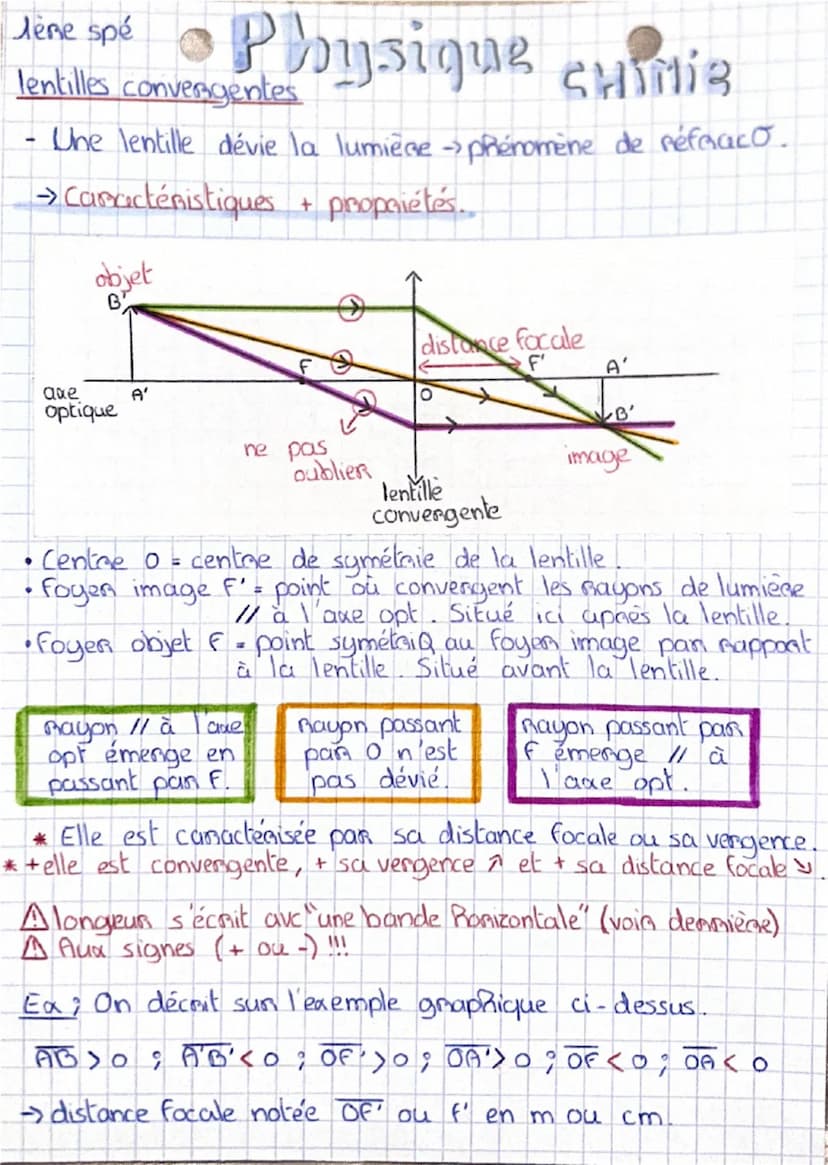 1ère spé
Physique CHIMIE
lentilles convergentes
- Une lentille dévie la lumière → phénomène de réfracO.
→ Caractéristiques + propriétés.
objet
B'
distance focale
F
F'
A'
axe
optique
A'
O
B'
ne pas
oublier
image
lentille
convergente
• Centre O = centre de symétrie de la lentille.
• Foyer image F' = point où convergent les rayons de lumière
// à l'axe opt. Situé ici après la lentille.
• Foyer objet F = point symétriQ au foyer image par rapport
à la lentille. Situé avant la lentille.
Rayon // à l'axe
opt émerge en
passant par F.
Rayon passant
par O n'est
pas dévié.
Rayon passant par
F émerge // à
l'axe opt.
* Elle est caractérisée par sa distance focale ou sa vergence.
* + elle est convergente, + sa vergence ↗ et + sa distance focale ↘.
⚠ longeur s'écrit avc "une bande horizontale" (voir derrnière)
⚠ Aux signes (+ ou -) !!!
Ex : On décrit sur l'exemple graphique ci-dessus.
A̅B̅ > 0 ; A̅'B̅' < 0 ; O̅F̅' > 0 ; O̅A̅' > 0 ; O̅F̅ < 0 ; O̅A̅ < 0
→ distance focale notée O̅F̅' ou f' en m ou cm.